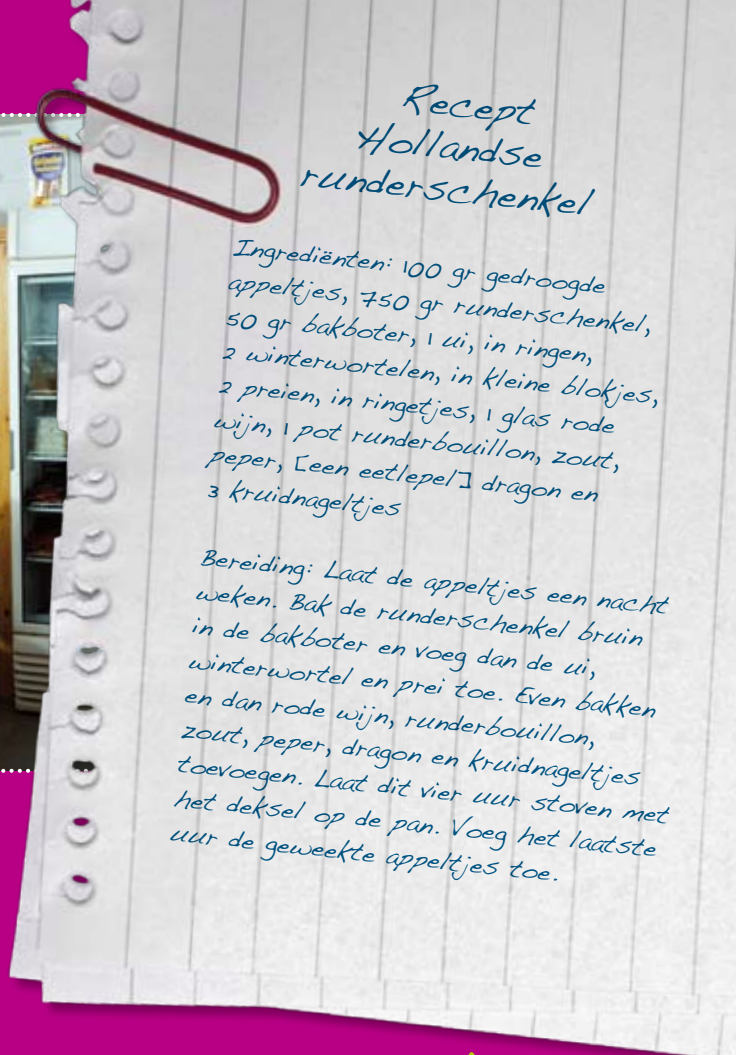 Recept
Hollandse
runderschenkel
Ingrediënten: 100 gr gedroogde
appeltjes, 750 gr runderschenkel,
50 gr bakboter, 1 ui, in ringen,
2 winterwortelen, in kleine blokjes,
2 preien, in ringetjes, 1 glas rode
wijn, 1 pot runderbouillon, zout,
peper, [een eetlepel] dragon en
3 kruidnageltjes
Bereiding: Laat de appeltjes een nacht
weken. Bak de runderschenkel bruin
in de bakboter en voeg dan de ui,
winterwortel en prei toe. Even bakken
en dan rode wijn, runderbouillon,
zout, peper, dragon en kruidnageltjes
toevoegen. Laat dit vier uur stoven met
het deksel op de pan. Voeg het laatste
uur de geweekte appeltjes toe.